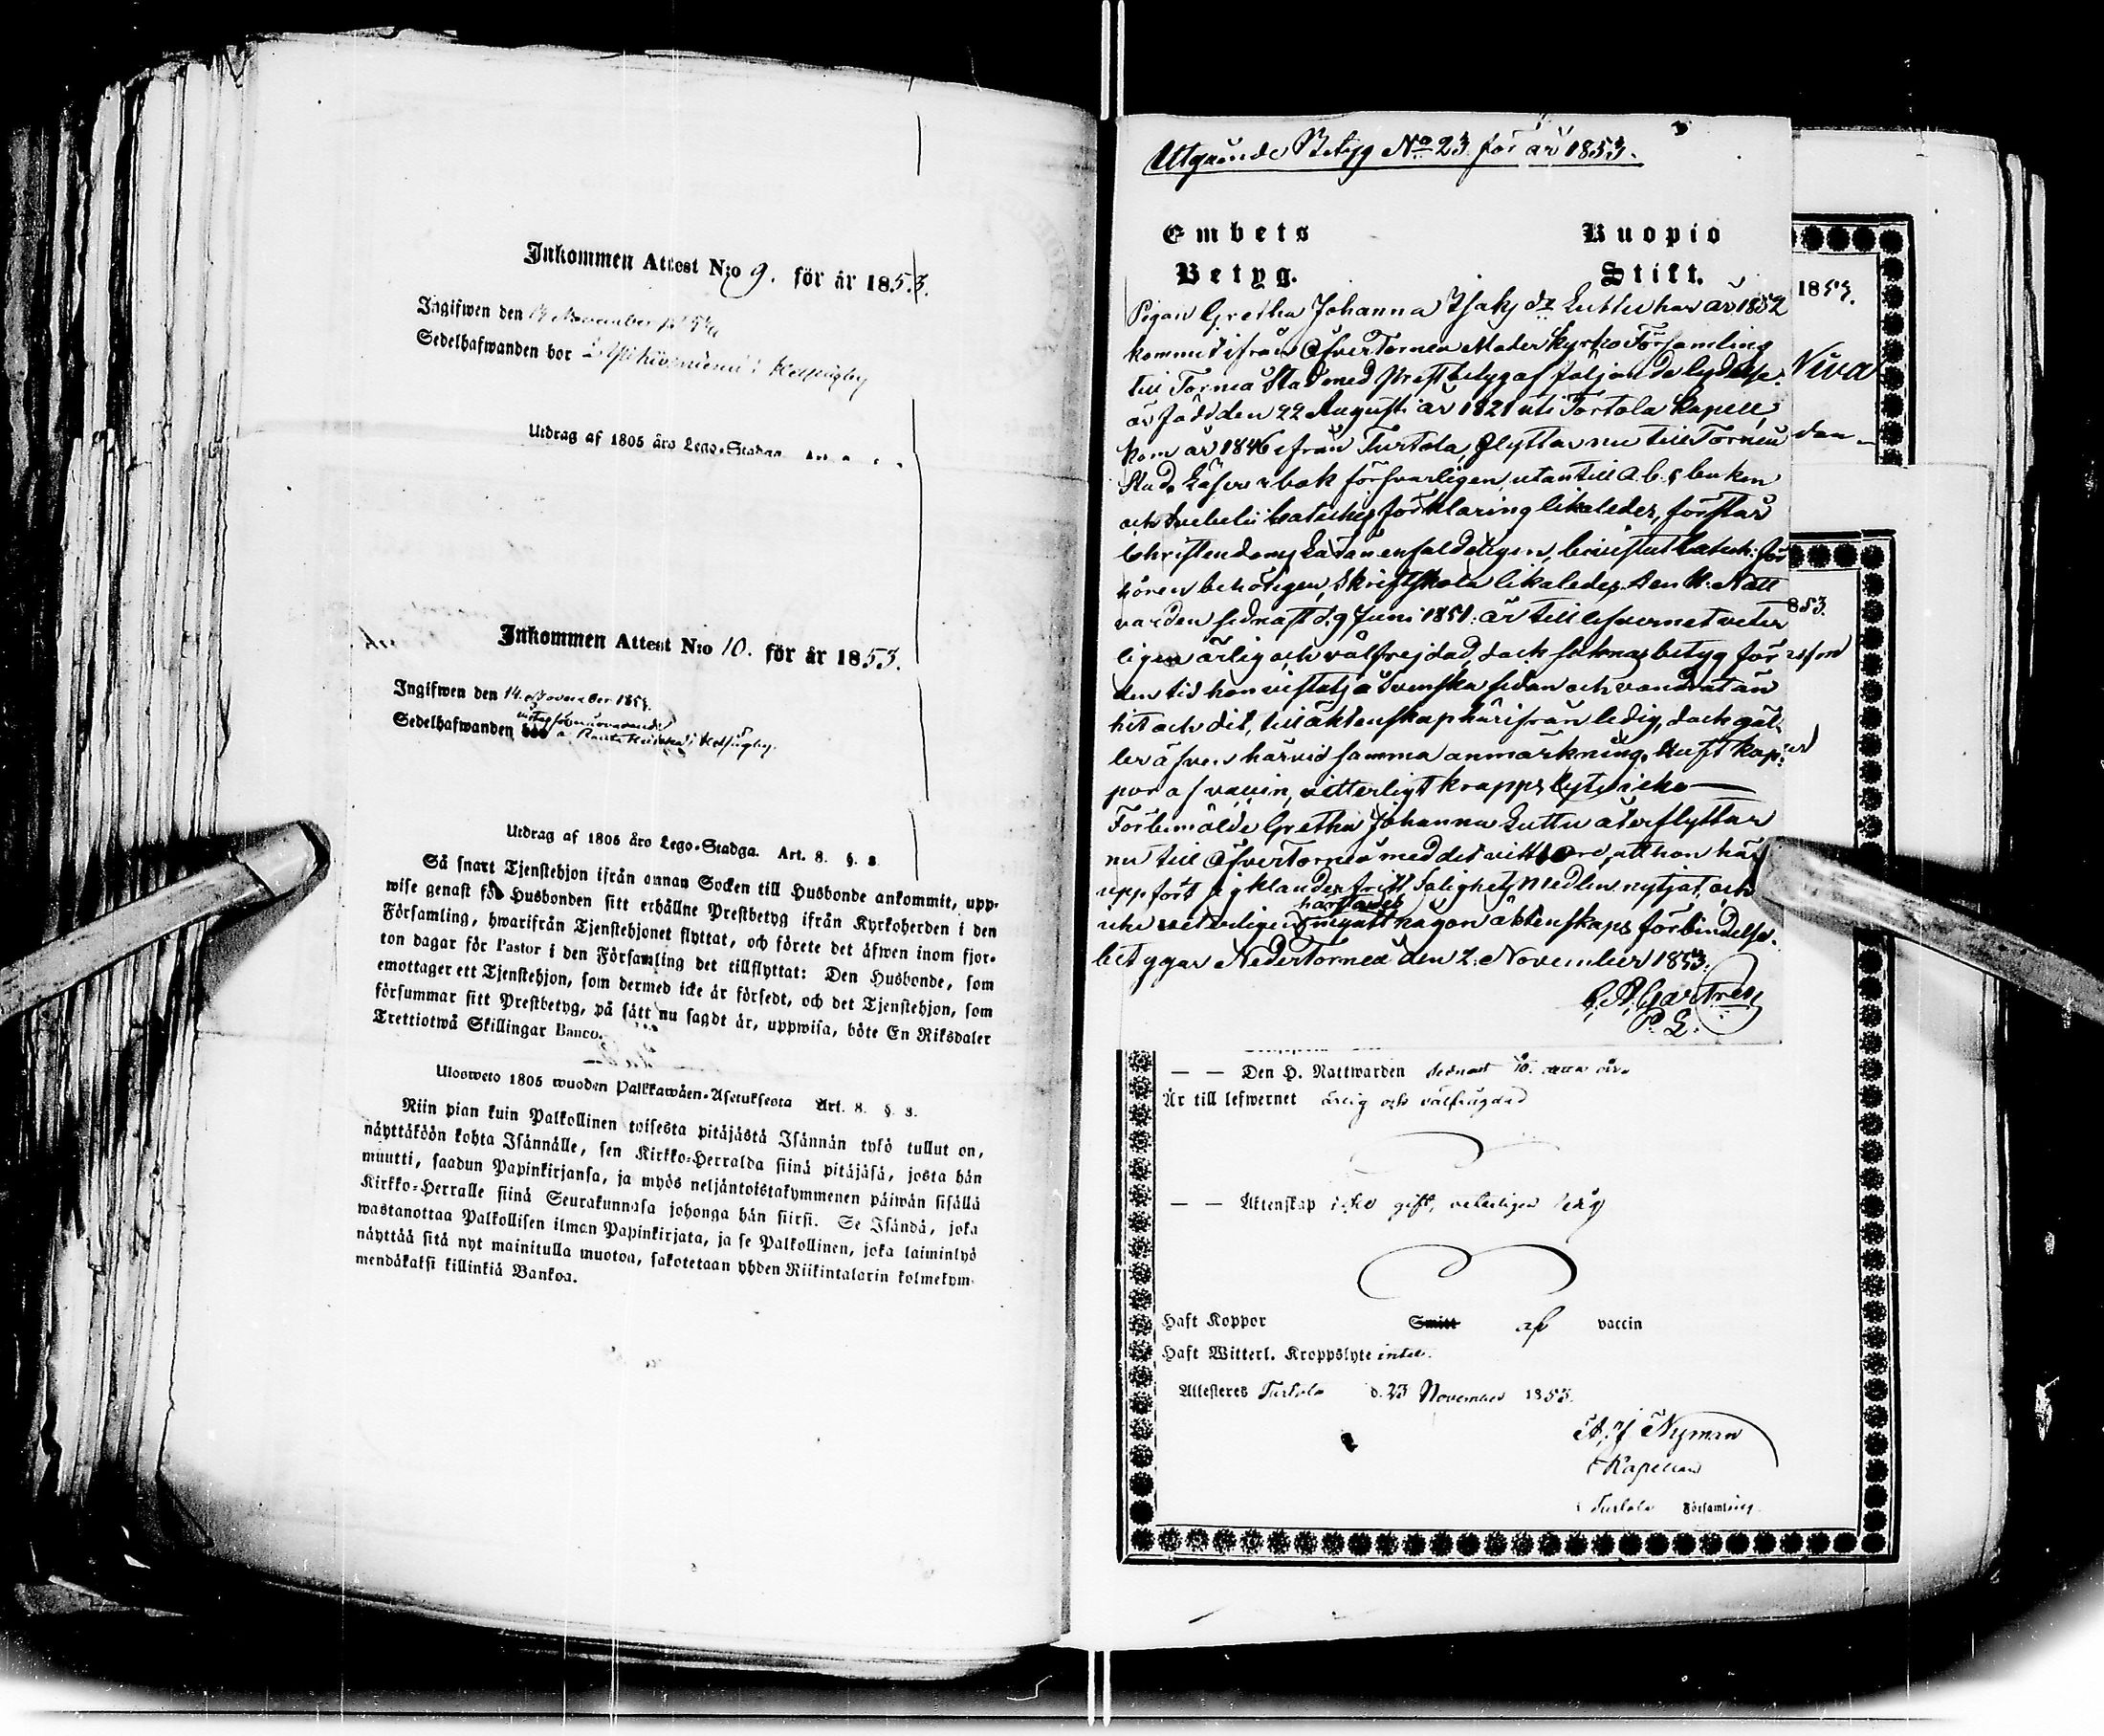 Inkommen Attest N:o 9. för år 1853.
Ingifwen den 14 November
Sedelhafwanden bor
Utdrag af 1805 års Lego-Stadga.
Inkommen Attest N:o 10. för år 1853.
Ingifwen den 14. November 1853.
Sedelhafwanden
Utdrag af 1805 års Lego-Stadga. Art. 8. §. 8.
Så snart Tjenstehjon ifrån annan Socken till Husbonde ankommit, upp-
wise genast för Husbonden sitt erhållne Prestbetyg ifrån Kyrkoherden i den
Församling, hwarifrån Tjenstehjonet flyttat, och förete det äfwen inom fjor-
ton dagar för Pastor i den Församling det tillflyttat: Den Husbonde, som
emottager ett Tjenstehjon, som dermed icke är försedt, och det Tjenstehjon, som
försummar sitt Prestbetyg, på sätt nu sagdt är, uppwisa, böte En Riksdaler
Trettiotwå Skillingar Banco.
Ulosweto 1805 wuoden Palkkawäen-Asetuksesta Art. 8. §. 8.
Niin pian kuin Palkollinen toisesta pitäjästä Isännän tykö tullut on,
näyttäköön kohta Isännälle, sen Kirkko-Herralda siinä pitäjäsä, josta hän
muutti, saadun Papinkirjansa, ja myös neljäntoistakymmenen päiwän sisällä
Kirkko-Herralle siinä Seurakunnasa johonga hän siirsi. Se Isändä, joka
wastanottaa Palkollisen ilman Papinkirjata, ja se Palkollinen, joka laiminlyö
näyttää sitä nyt mainitulla muotoa, sakotetaan yhden Riikintalarin kolmekym-
mendäkaksi killinkiä Bankoa.
Utgående Betyg No 23 för år 1853.
Embets Kuopio
Betyg. Stift.
Pigan Gretha Johanna Isaksdr Luttu har år 1852
kommit ifrån ÖfverTorneå Moderkyrko Församling
till Torneå Stad med Prestbetyg af följande lydelse:
är född den 22 Augusti år 1821 uti Turtola Kapell,
kom år 1846 ifrån Turtola, flyttar nu till Torneå
Stad. Läser i bok försvarligen, utantill a.b.c. boken
och Svebelii Cateches förklaring likaledes, förstår
Christendoms Läran enfaldeligen, bevistat Catech: för
hören behörigen, Skriftskola likaledes, Den H. Natt
varden sednast d. 9 Juni 1851: är till lefvernet veter
ligen ärlig och välfrejdad, dock saknas betyg för
den tid hon vistats å Svenska sidan och vandrat än
hit och dit, till äktenskap härifrån ledig, dock gäl-
ler äfven härvid samma anmärkning. Haft kop-
por af vaccin, vitterligt kroppslyte icke
Förbemälde Gretha Johanna Luttu återflyttar
nu till ÖfverTorneå med det vittsord, att hon här
uppfört sig klanderfritt, Salighets medlen nyttjat, och
icke veterligen härstädes ingått någon äktenskaps förbindelse.
betygar NederTorneå den 2. November 1853.
P. L.
1853.
Niva
853.
— — Den H. Nattwarden sednast
Är till lefwernet ärlig och välfrägdad
— — Äktenskap icke gift, veterligen ledig
Haft Koppor Smitt af vaccin
Haft Witterl. Kroppslyte intet.
Attesteres Turtola d. 23 November 1853.
A. J. Nyman
Kapellan
i Turtola Församling.